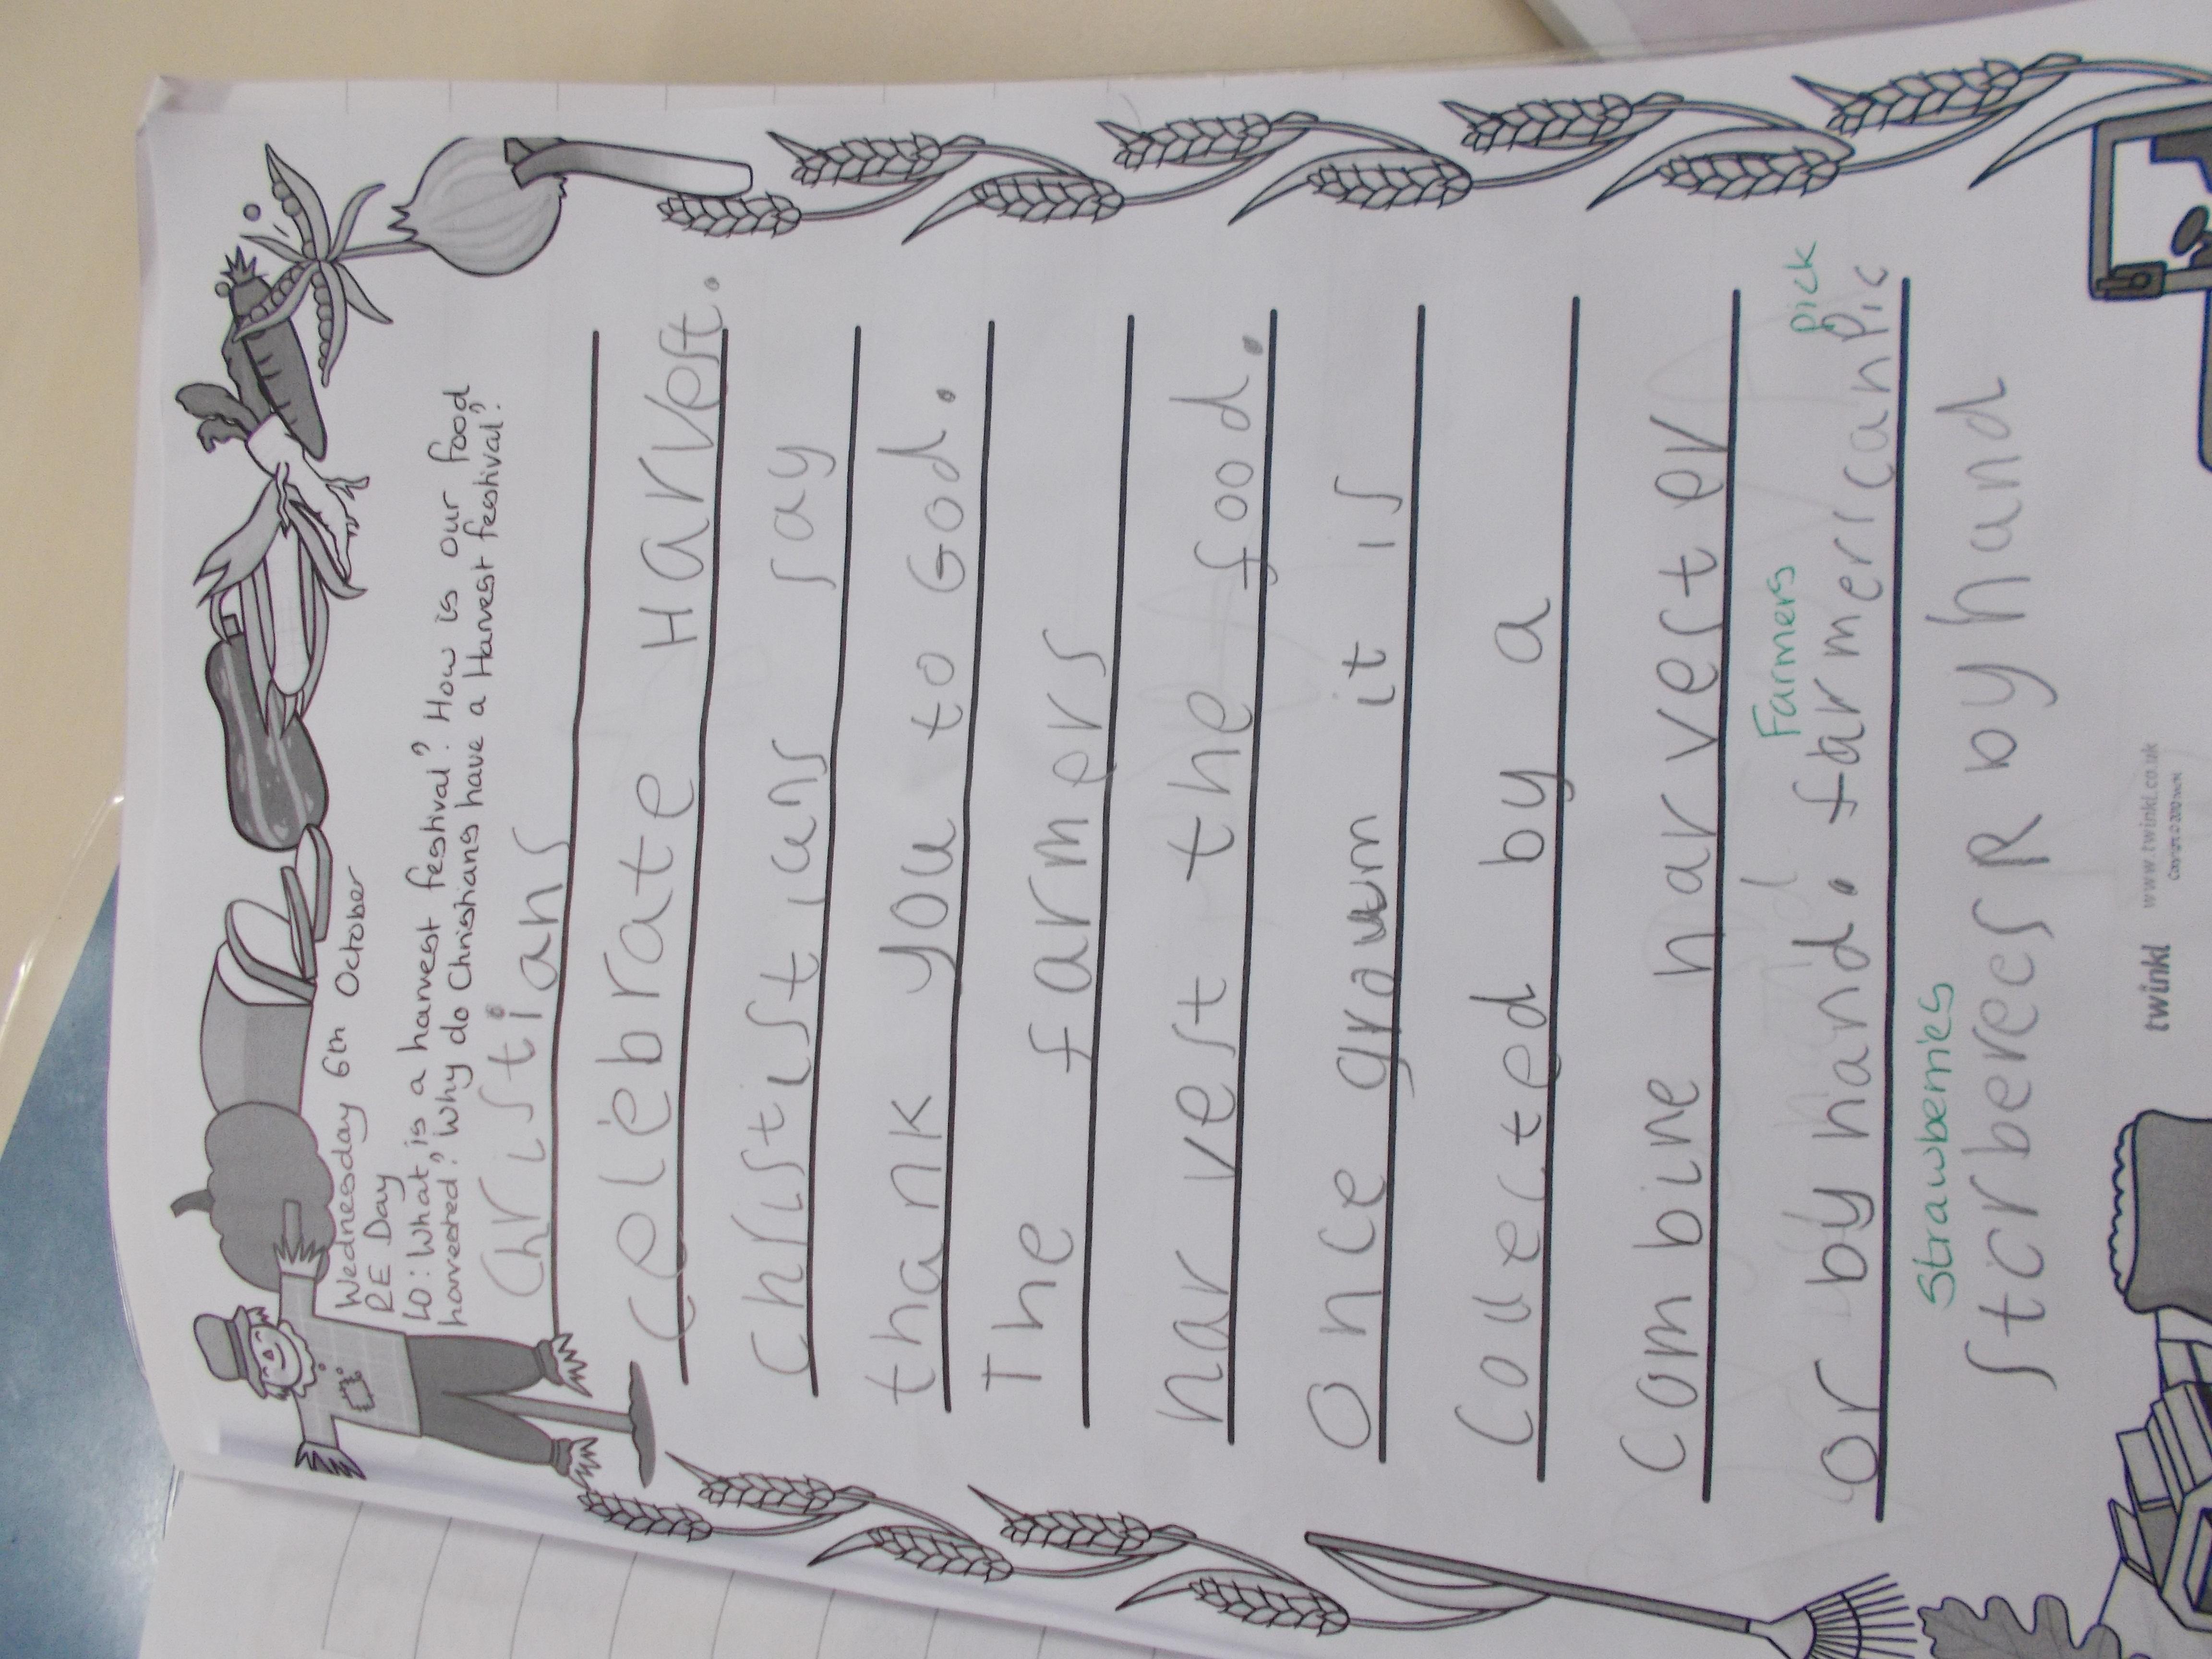 Wednesday 6th October
RE Day
LO: What is a harvest festival? How is our food
harvested? Why do Christians have a Harvest festival?
Christians
celebrate Harvest.
Christians say
thank you to God.
The farmers
harvest the food.
Once grown it is
collected by a
combine harvester
Farmers pick
or by hand. farmers can pic
Strawberries
storberees R by hand
twinkl www.twinkl.co.uk